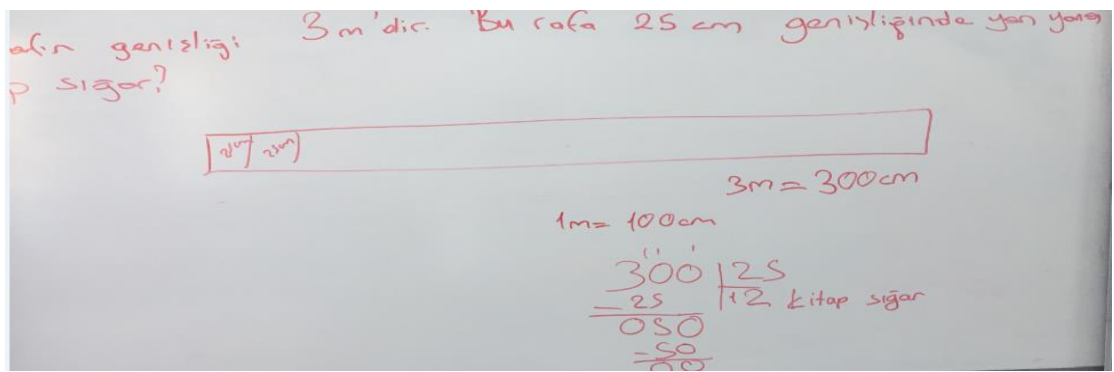 afın genişliği 3 m'dir. Bu rafa 25 cm genişliğinde yan yana
p sığar?
25cm 25cm
3m = 300cm
1m = 100cm
300 25
- 25 12 kitap sığar
050
- 50
00